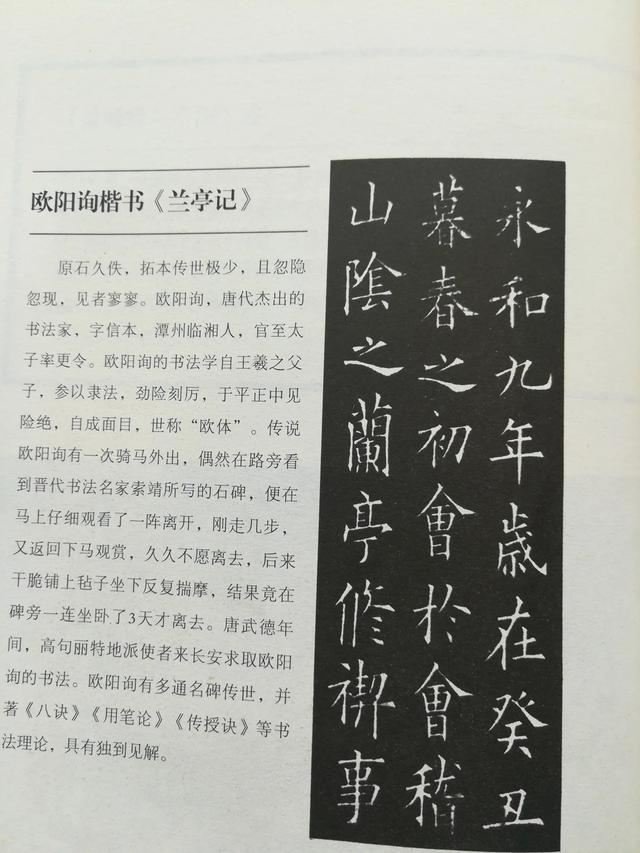 欧阳询楷书《兰亭记》
原石久佚，拓本传世极少，且忽隐
忽现，见者寥寥。欧阳询，唐代杰出的
书法家，字信本，潭州临湘人，官至太
子率更令。欧阳询的书法学自王羲之父
子，参以隶法，劲险刻厉，于平正中见
险绝，自成面目，世称“欧体”。传说
欧阳询有一次骑马外出，偶然在路旁看
到晋代书法名家索靖所写的石碑，便在
马上仔细观看了一阵离开，刚走几步，
又返回下马观赏，久久不愿离去，后来
干脆铺上毡子坐下反复揣摩，结果竟在
碑旁一连坐卧了3天才离去。唐武德年
间，高句丽特地派使者来长安求取欧阳
询的书法。欧阳询有多通名碑传世，并
著《八诀》《用笔论》《传授诀》等书
法理论，具有独到见解。
永和九年歳在癸丑
暮春之初會於會稽
山陰之蘭亭修禊事